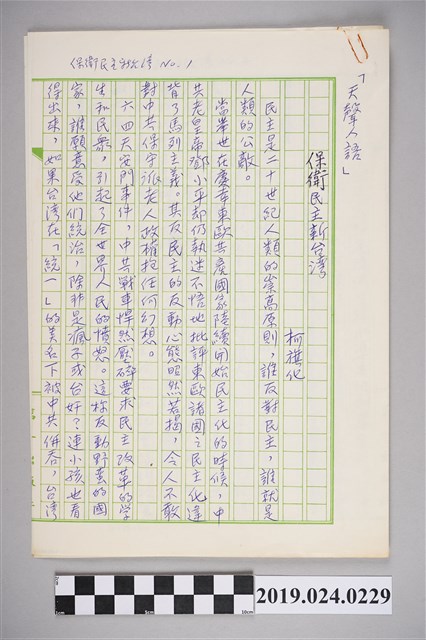 保衛民主新台湾 No. 1
「天聲人語」
保衛民主新台湾
柯旗化
民主是二十世紀人類的崇高原則，誰反對民主，誰就是
人類的公敵。
當舉世在慶幸東欧共產國家陸續開始民主化的時候，中
共老皇帝鄧小平却仍執迷不悟地批評東欧諸國之民主化違
背了馬列主義。其反民主的反動心態昭然若揭，令人不敢
對中共保守派老人政權抱任何幻想。
六四天安門事件，中共戰車悍然壓碎要求民主改革的学
生和民眾，引起了全世界人民的憤怒。這样反動野蛮的國
家，誰願意受他們統治，除非是瘋子或台奸？連小孩也看
得出來，如果台湾在「統一」的美名下被中共併吞，台湾
2019.024.0229
5cm
10cm